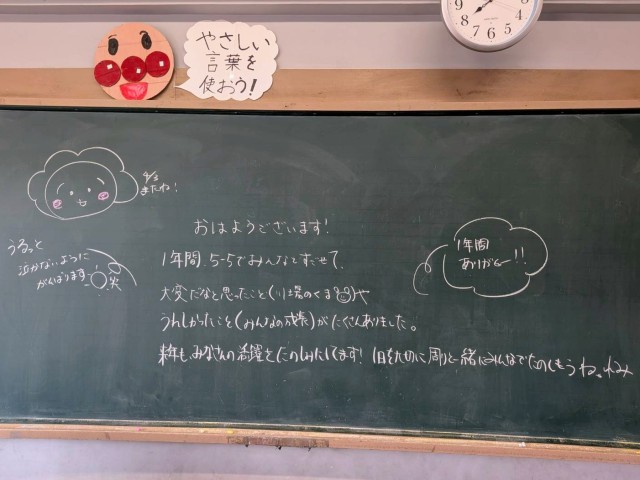 やさしい
言葉を
使おう!
またね!
おはようございます!
うるっと
泣かないように
がんばります
1年間
ありがとー!!
1年間 5-5でみんなとすごせて、
大変だなと思ったこと(
うれしかったこと(みんなの成長)がたくさんありました。
来年も、みなさんの活躍をたのしみにしてます! 1日を大切に周りと一緒にみんなでたのしもうね。